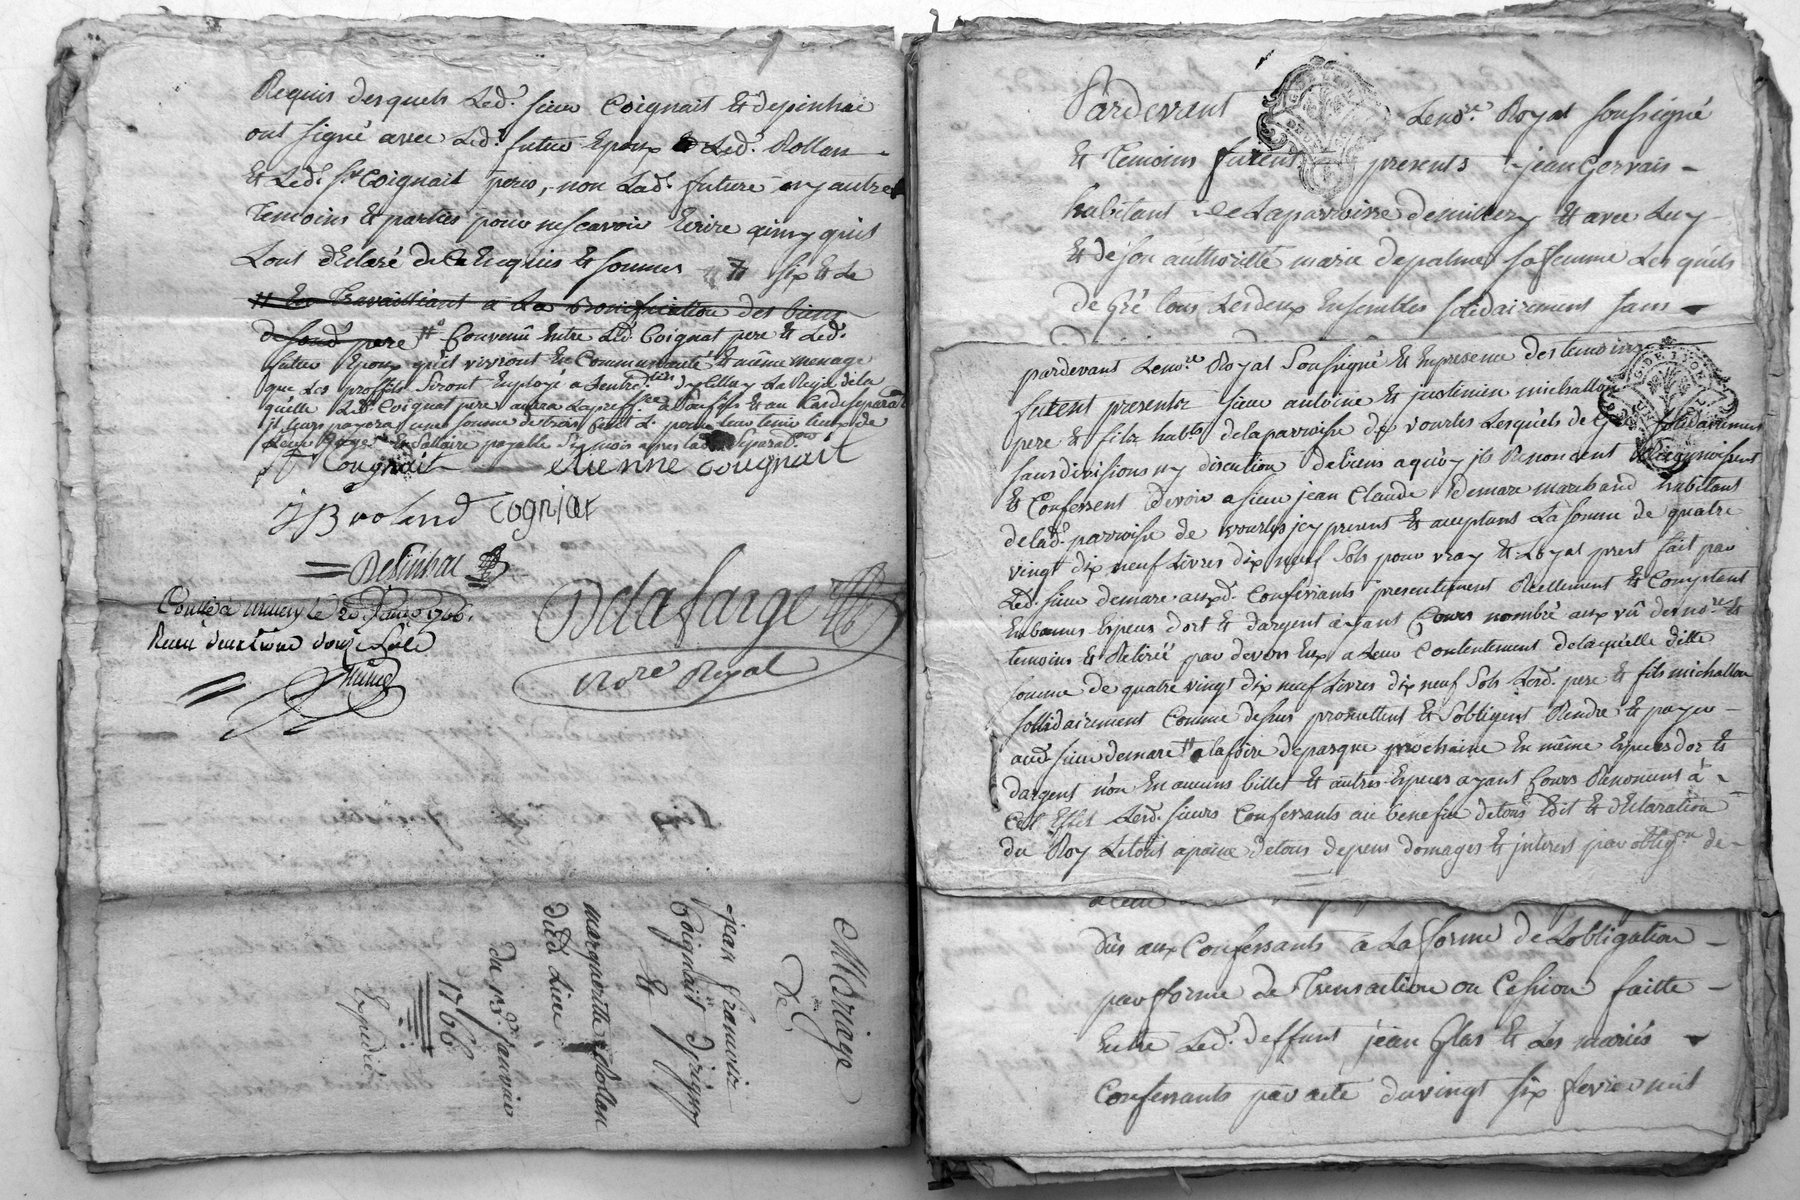 Requis desquels Led. sieur Coignait & depinhac
ont signé avec Led. futur Epoux & Led. Rollan
& Led. sr Coignait pere, non Lad. future ny autres
Temoins & parties pour ne scavoir Ecrire ainsy quils
Lont déclaré de ce Enquis & sommés six & Le
# En Travaillant a La Bonification des biens
pere # Convenû Entre Led. Coignat pere & Led.
futur Epoux quil vivront En Communauté & même menage
que Les proffits Seront Employé a
quelle Led. Coignat pere
il leur payera une somme de trois cent L. pour leur tenir lieu de
payable Six mois apres lad. separaon
Cougnait etienne cougnait
J B roland cognier
Depinhac
Delafarge
Nore Royal
Conlé a millery le 20 Janv. 1766.
Receu douze sols
Mariage
De
jean francois
Coignait d'jrigny
&
marguerite Rollan
dud. Lieu
du pr. janvier
1766
Expedié
Pardevant Le nore Royal soussigné
GÉNÉ DE LYON
& Temoins furent presents jean Gervais
habitant de La parroisse de millery & avec Luy
& de son authorité marie depalme sa femme Lesquels
de Gré tous Les deux Ensembles solidairement sans
pardevant Le nore Royal Soussigné & En presence des temoins
G. DE LYON
furent presents sieur antoine & justinien michallon
pere & fils habts de la parroisse de vourles Lesquels de Gré solidairement
sans division ny discution de biens a quoy ils Renoncent Reconnoissent
& Confessent devoir a sieur jean Claude demare marchand habitant
de lad. parroisse de vourles icy present & acceptant La somme de quatre
vingt dix neuf Livres dix neuf Sols pour vray & Loyal prest fait par
Led. sieur demare auxd. Confessants presentement Reellement & Comptant
En bonnes Especes d'ort & dargent ayant Cours nombré aux vû desnore &
temoins & Retiréé par devers Eux a Leur Contentement de laquelle ditte
somme de quatre vingt dix neuf Livres dix neuf Sols Lesd. pere & fils michallon
sollidairement Comme dessus promettent & s'obligent Rendre & payer
aud. sieur demare # a la foire de pasque prochaine En même Especes dor &
dargent non En aucuns billet & autres Especes ayant Cours Renoncent à
Cet Effet Lesd. sieurs Confessants au benefice de tous Edit & déclaration
du Roy Le tout a peine de tous depens domages & jnterest par obligon de
dûs aux Confessants a La forme de Lobligation
par forme de Transaction ou Cession faitte
Entre Led. deffunt jean Glas & Les mariés
Confessants par acte du vingt six fevrier mil